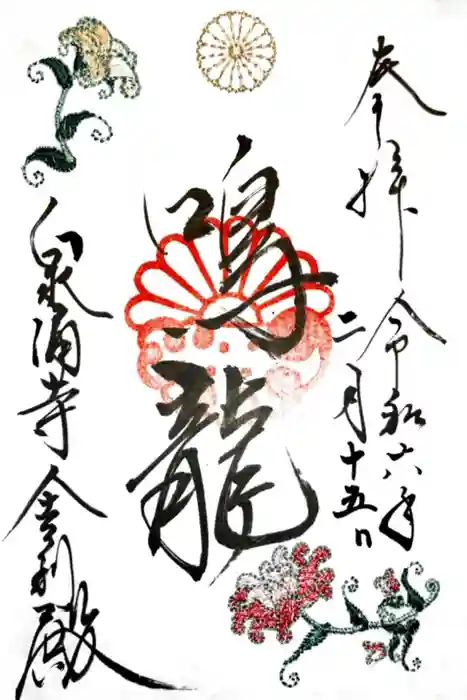 奉拝 令和六年
二月十五日
鳴龍
泉涌寺 舎利殿